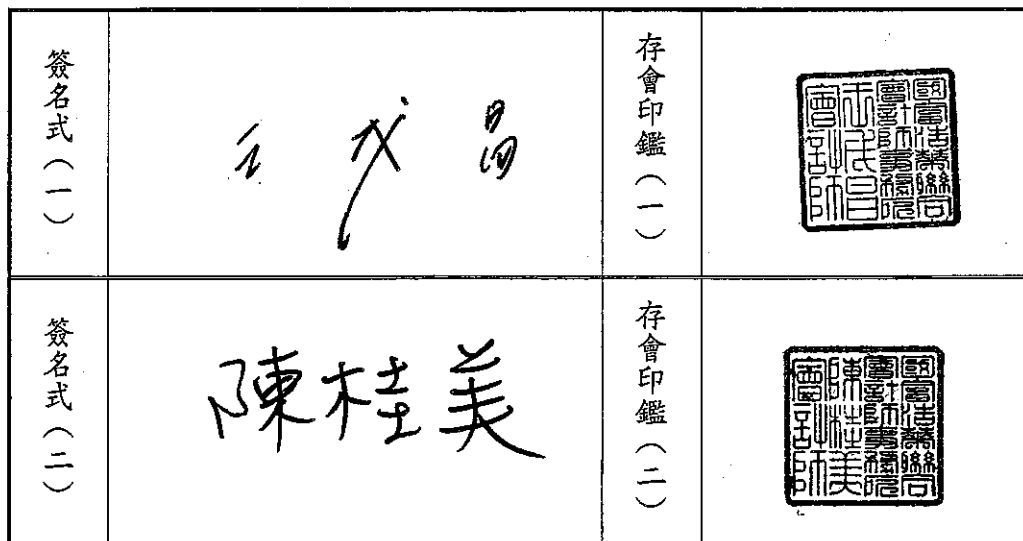 簽名式（一）
王戊昌
存會印鑑（一）
國富浩華聯合
會計師事務所
王戊昌
會計師
簽名式（二）
陳桂美
存會印鑑（二）
國富浩華聯合
會計師事務所
陳桂美
會計師